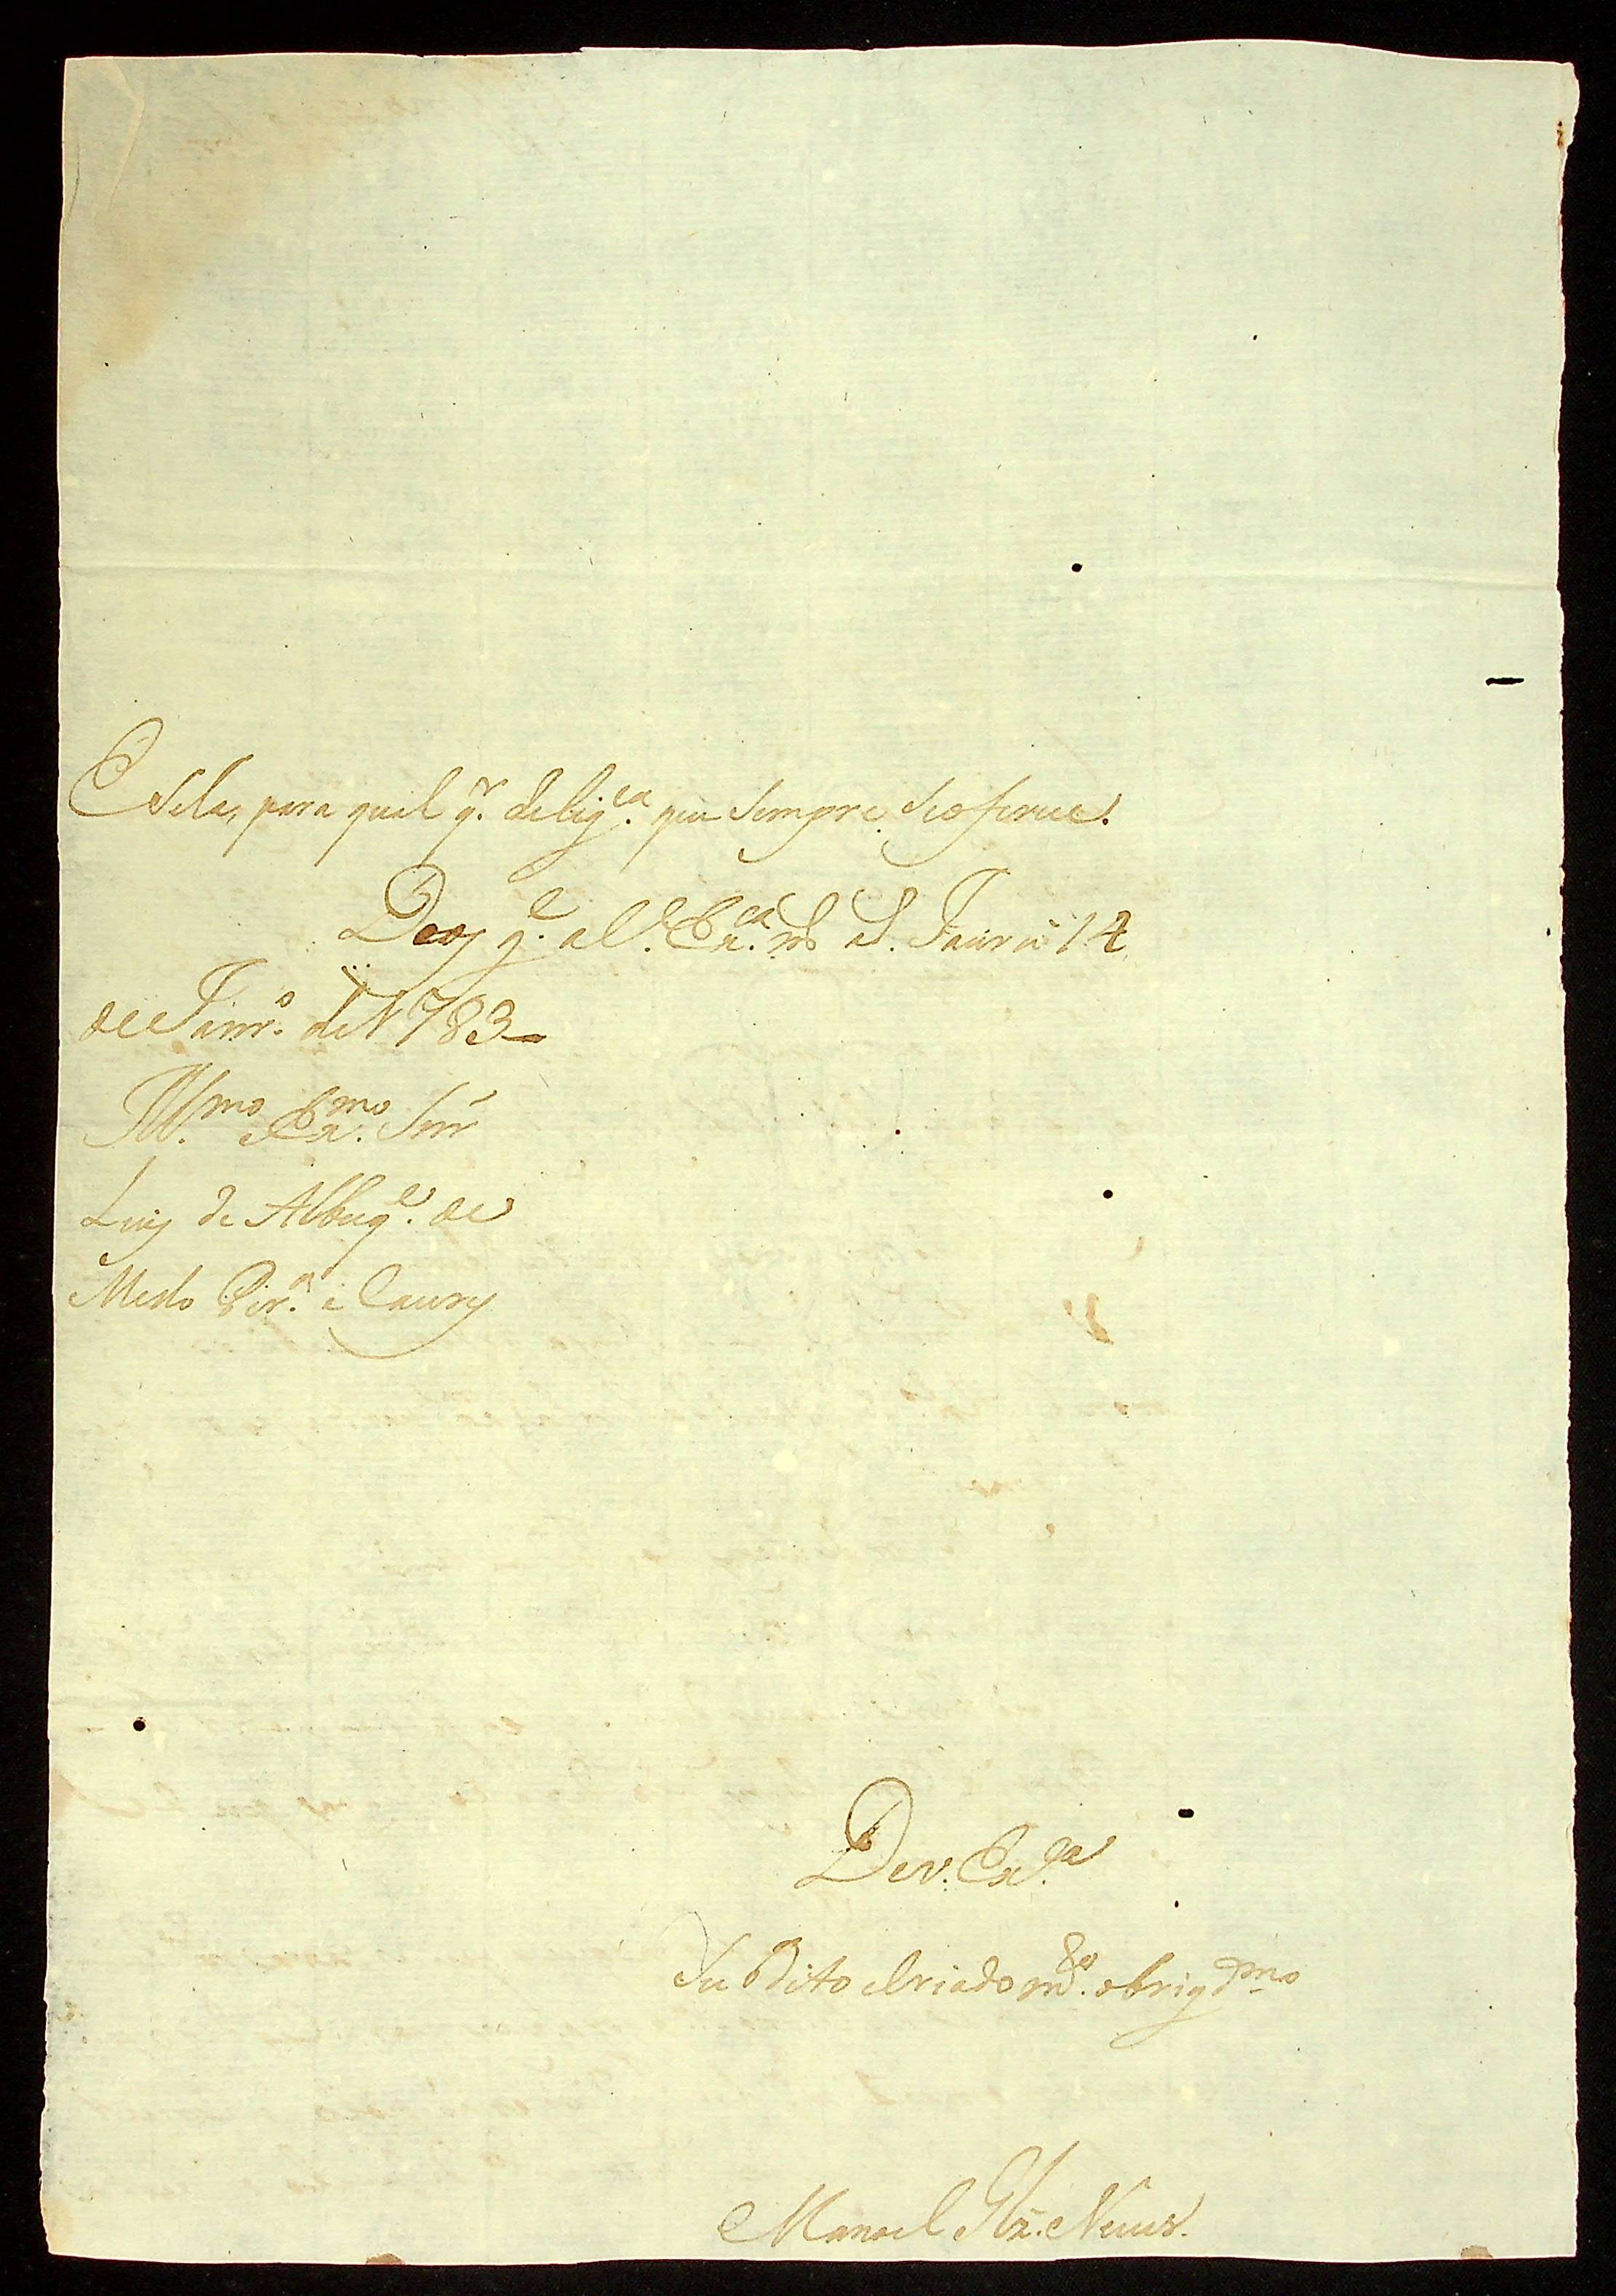 E Sela, para qual q.r delig.ca que Sempre, Se oferece.
Deos g.e a V. Ex.ca m.s a.s Jaurú 14
de Janr.o de 1783
Ill.mo e Ex.mo Snr
Luis de Albuq.e de
Mello Per.a e Caserez
De V. Ex.ca
Su Bdito e Criado m.to obrig.dmo
Manoel Glz. Neves.